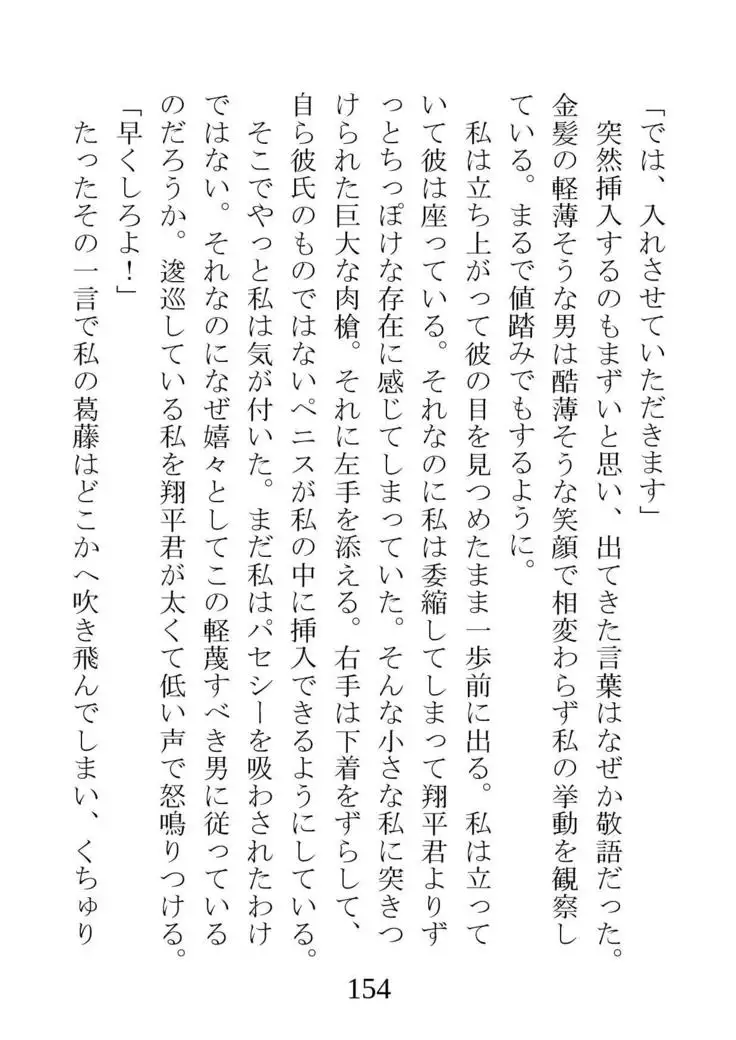 「では、入れさせていただきます」
　突然挿入するのもまずいと思い、出てきた言葉はなぜか敬語だった。
金髪の軽薄そうな男は酷薄そうな笑顔で相変わらず私の挙動を観察し
ている。まるで値踏みでもするように。
　私は立ち上がって彼の目を見つめたまま一歩前に出る。私は立って
いて彼は座っている。それなのに私は委縮してしまって翔平君よりず
っとちっぽけな存在に感じてしまっていた。そんな小さな私に突きつ
けられた巨大な肉槍。それに左手を添える。右手は下着をずらして、
自ら彼氏のものではないペニスが私の中に挿入できるようにしている。
　そこでやっと私は気が付いた。まだ私はパセシーを吸わされたわけ
ではない。それなのになぜ嬉々としてこの軽蔑すべき男に従っている
のだろうか。逡巡している私を翔平君が太くて低い声で怒鳴りつける。
「早くしろよ！」
　たったその一言で私の葛藤はどこかへ吹き飛んでしまい、くちゅり
154